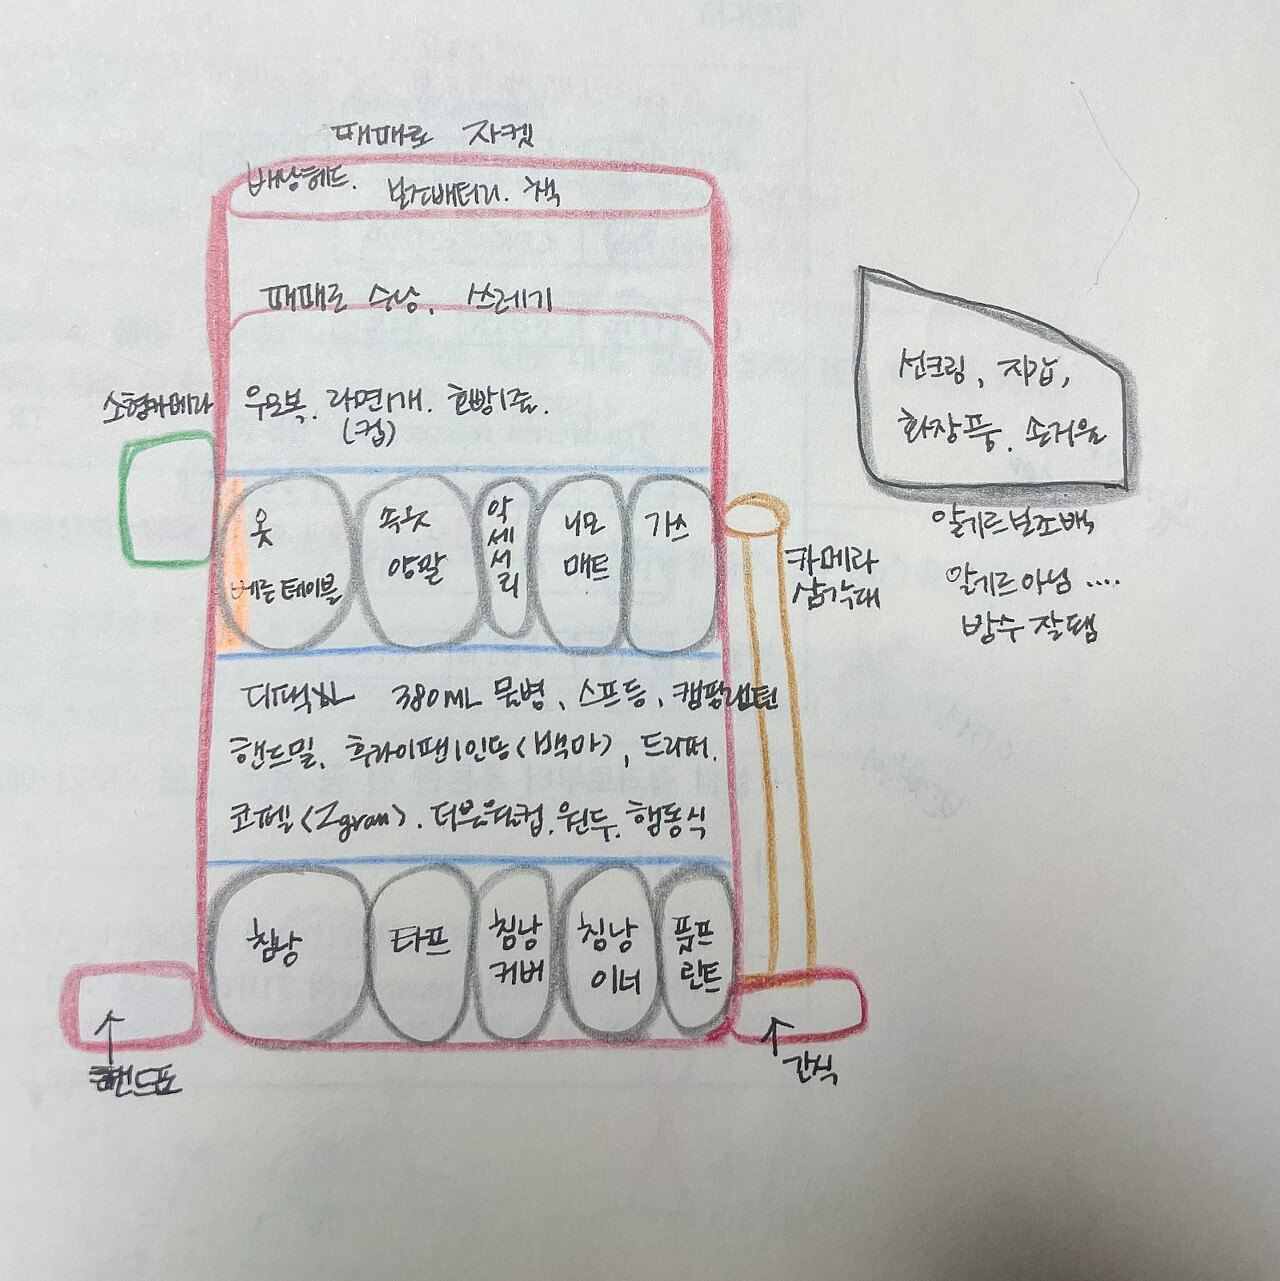 패패로 자켓
배낭헤드.
보조배터리. 책
패패로 수낭, 쓰레기
소형카메라
우모복. 라면1개. 호빵1줄.
(컵)
옷
베른 테이블
속옷
양말
악세서리
니모
매트
가스
카메라
삼각대
선크림, 지갑,
화장품. 손거울
알게르보조백
알게르아님 ....
방수 잘됌
디팩XL 380ML 물병, 스프등, 캠핑랜턴
핸드밀, 후라이팬1인용(백마), 드리퍼.
코펠(Zgram). 더블월컵. 원두. 행동식
침낭
타프
침낭
커버
침낭
이너
풋프
린트
핸드폰
간식